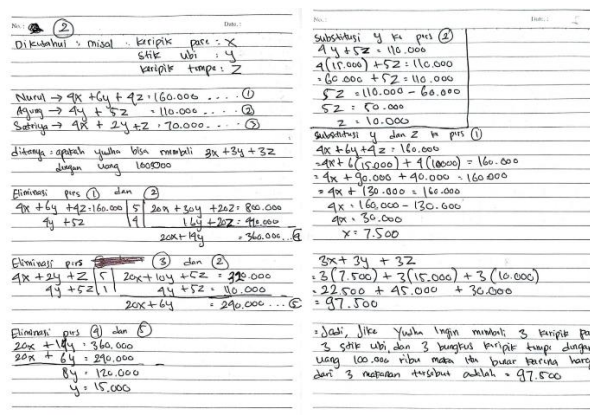 No.: ②
Date.:
Diketahui : misal : keripik pare : x
stik ubi : y
keripik tempe : z
Nurul → 4x + 6y + 4z = 160.000 .... ①
Agung → 4y + 5z = 110.000 .... ②
Satriya → 4x + 2y + z = 70.000 .... ③
ditanya : apakah yudha bisa membeli 3x + 3y + 3z
dengan uang 100.000
Eliminasi pers ① dan ②
4x + 6y + 4z = 160.000 | 5 | 20x + 30y + 20z = 800.000
4y + 5z | 4 | 16y + 20z = 440.000
20x + 14y = 360.000 ... ④
Eliminasi pers ③ dan ②
4x + 2y + z | 5 | 20x + 10y + 5z = 350.000
4y + 5z | 1 | 4y + 5z = 110.000
20x + 6y = 240.000 ... ⑤
Eliminasi pers ④ dan ⑤
20x + 14y = 360.000
20x + 6y = 240.000
8y = 120.000
y = 15.000
No.:
Date.:
Substitusi y ke pers ②
4y + 5z = 110.000
4(15.000) + 5z = 110.000
= 60.000 + 5z = 110.000
5z = 110.000 - 60.000
5z = 50.000
z = 10.000
Substitusi y dan z ke pers ①
4x + 6y + 4z = 160.000
= 4x + 6(15.000) + 4(10000) = 160.000
= 4x + 90.000 + 40.000 = 160.000
= 4x + 130.000 = 160.000
4x = 160.000 - 130.000
4x = 30.000
x = 7.500
3x + 3y + 3z
= 3(7.500) + 3(15.000) + 3(10.000)
= 22.500 + 45.000 + 30.000
= 97.500
= Jadi, Jika Yudha ingin membeli 3 keripik
3 stik ubi, dan 3 bungkus keripik tempe dengan
uang 100.000 ribu maka itu benar karena
dari 3 makanan tersebut adalah = 97.500